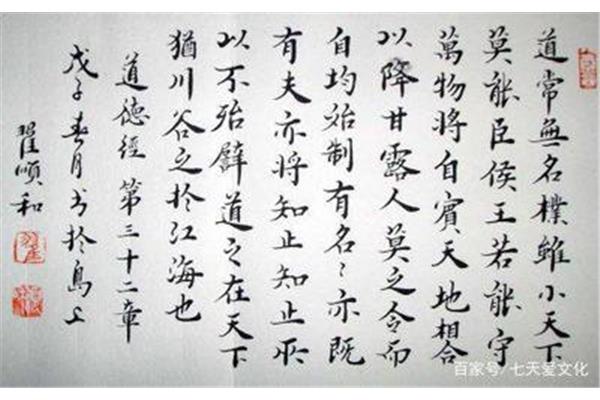 道常無名樸雖小天下
莫能臣侯王若能守
萬物將自賓天地相合
以降甘露人莫之令而
自均始制有名〻亦既
有夫亦將知止知止所
以不殆譬道之在天下
猶川谷之於江海也
道德經第三十二章
戊子春月書於島上
翟順和
百家号/七天爱文化